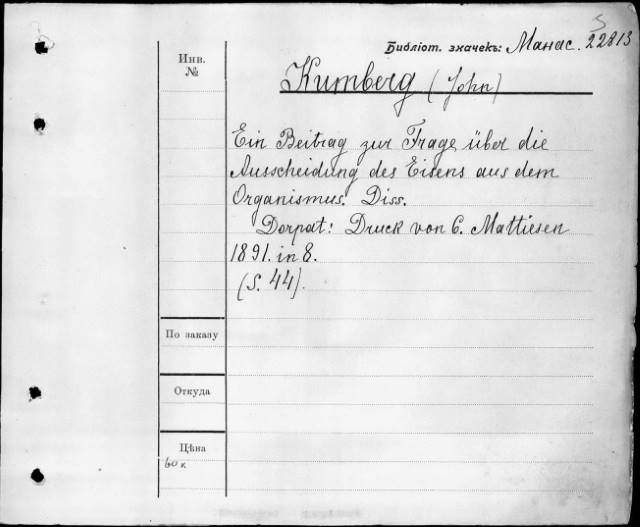 S
Библіот. значекъ: Манас. 22813
Инв.
№
Kumberg (John)
Ein Beitrag zur Frage über die
Ausscheidung des Eisens aus dem
Organismus. Diss.
Dorpat: Druck von C. Mattiesen
1891. in 8.
(S. 44).
По заказу
Откуда
Цѣна
60 к